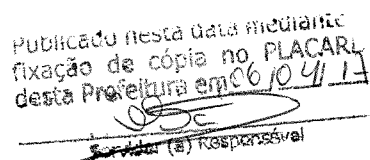 Publicado nesta data mediante
fixação de cópia no PLACARD
desta Prefeitura em 06/04/17
Servidor (a) Responsável